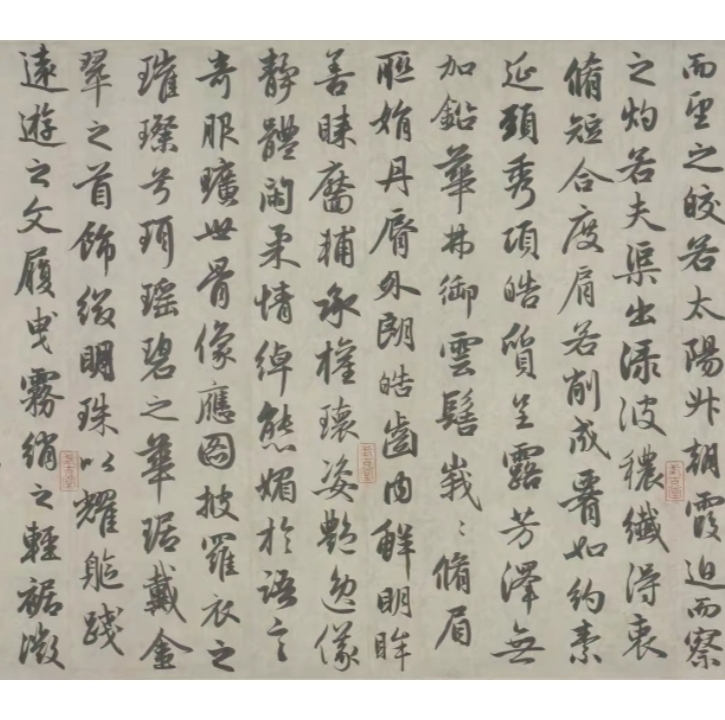 而望之皎若太陽升朝霞迫而察
之灼若夫渠出渌波穠纖得衷
脩短合度肩若削成腰如約素
延頸秀項皓質呈露芳澤無
加鉛華弗御雲髻峩〻脩眉
聮娟丹脣外朗皓齒内鮮明眸
善睐靨輔承權瓌姿艶逸儀
静體閑柔情綽態媚於語言
奇服曠世骨像應圖披羅衣之
璀璨兮珥瑶碧之華琚戴金
翠之首飾綴明珠以耀軀踐
遠遊之文履曳霧綃之輕裾微